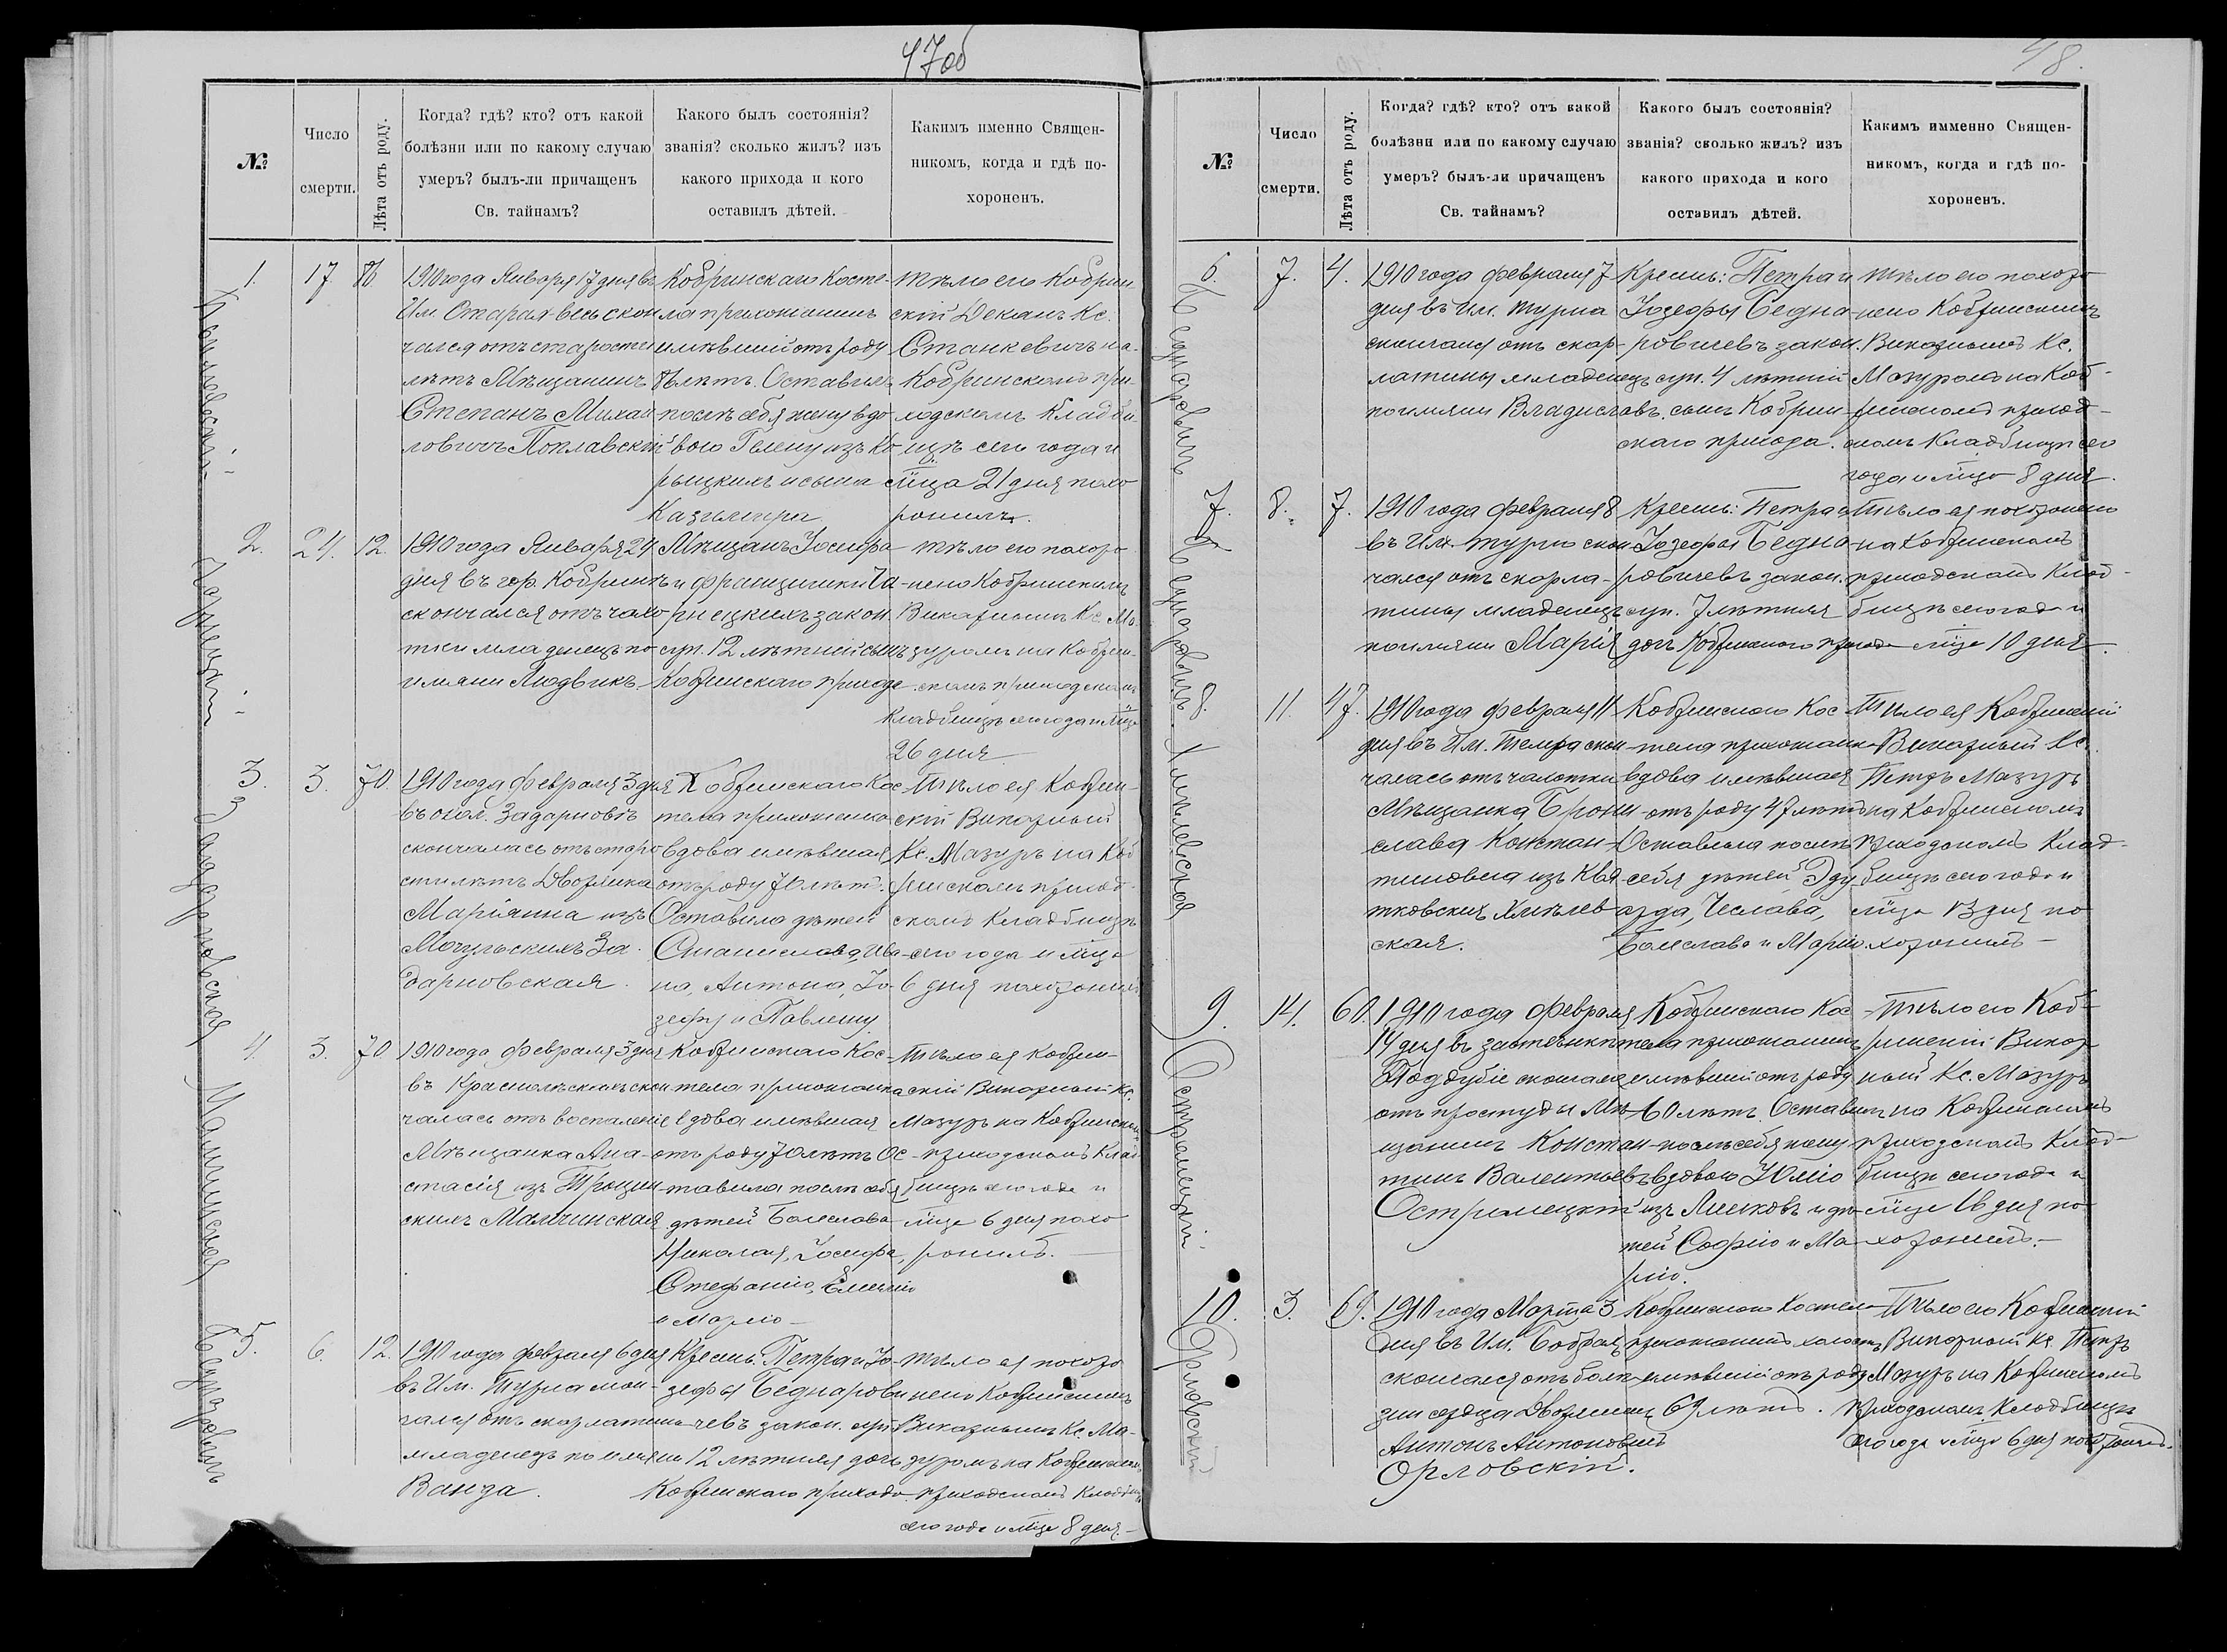 47об
№
Число
смерти.
Лѣта отъ роду.
Когда? гдѣ? кто? отъ какой
болѣзни или по какому случаю
умеръ? былъ-ли причащенъ
Св. тайнамъ?
Какого былъ состоянія?
званія? сколько жилъ? изъ
какого прихода и кого
оставилъ дѣтей.
Какимъ именно Священ-
никомъ, когда и гдѣ по-
хороненъ.
1.
17
Поплавскій
1910 года Января 17 дня въ
Им. Старая-весь скон
чался отъ старости
лѣтъ Мѣщанинъ
Степанъ Михаи
ловичъ Поплавскій
Кобринскаго Косте-
ла прихожанинъ
имѣвшій отъ роду
лѣтъ. Оставилъ
послѣ себя жену вдо
вою Гелену изъ Ко
рыцкихъ и сына
Казимира
тѣло его Кобрин
скій Деканъ Кс.
Станкевичъ на
Кобринскомъ при-
ходскомъ Кладби-
щѣ сего года и
мца 21 дня похо
ронилъ.
2.
24.
12.
1910 года Января 24
дня въ гор. Кобринѣ
скончался отъ чахо
тки младенецъ по
имяни Людвикъ
Мѣщанъ Іосифа
и Францишки Ча
рнецкихъ закон.
суп. 12 лѣтній сынъ
Кобринскаго прихода
тѣло его похоро
нено Кобринскимъ
Викарнымъ Кс. Ма
зуромъ на Кобрин-
скомъ приходскомъ
Кладбищѣ сего года и мца
26 дня
3.
3.
70.
Задарновская
1910 года Февраля 3 дня
въ окол. Задарновѣ
скончалась отъ старо
сти лѣтъ Дворянка
Маріянна изъ
Мочульскихъ За
дарновская.
Кобринскаго Кос
тела прихожанка
вдова имѣвшая
отъ роду 70 лѣтъ.
Оставила дѣтей
Станислава, Ива
на, Антона, Іо-
зефу и Павлину
тѣло ея Кобрин-
скій Викарный
Кс. Мазуръ на Коб
ринскомъ приход
скомъ Кладбищѣ
сего года и мца
6 дня похоронилъ
4.
3.
70
Малчинская
1910 года Февраля 3 дня
чалась отъ воспаленіе
Мѣщанка Ана-
стасія изъ
скихъ Малчинская
Кобринскаго Кос-
тела прихожанка
вдова имѣвшая
отъ роду 70 лѣтъ Ос-
тавила послѣ себя
дѣтей Болеслава
Николая, Іосифа,
Стефанію, Емилію
и Марію
Тѣло ея Кобрин-
скій Викарный Кс.
Мазуръ на Кобринском
приходскомъ Клад
бищѣ сего года и
мца 6 дня похо
ронилъ.
5.
6.
12.
Беднаровичъ
1910 года Февраля 6 дня
въ Им. Турна скон-
чался отъ скарлатины
младенецъ по имяни
Ванда.
Крестн. Петра и Іо-
зефы Беднарови
чевъ закон. суп.
12 лѣтняя дочь
Кобринскаго прихода.
тѣло ея похоро
нено Кобринскимъ
Викарнымъ Кс. Ма-
зуромъ на Кобринскомъ
приходскомъ Кладбищѣ
сего года и мца 8 дня.
48.
№
Число
смерти.
Лѣта отъ роду.
Когда? гдѣ? кто? отъ какой
болѣзни или по какому случаю
умеръ? былъ-ли причащенъ
Св. тайнамъ?
Какого былъ состоянія?
званія? сколько жилъ? изъ
какого прихода и кого
оставилъ дѣтей.
Какимъ имменно Священ-
никомъ, когда и гдѣ по-
хороненъ.
6.
7.
4.
Беднаровичъ
1910 года Февраля 7
дня въ Им. Турна
скончался отъ скар-
латины младенецъ
по имяни Владиславъ
Крестн: Петра и
Іозефы Бедна-
ровичевъ закон.
суп. 4 лѣтній
сынъ Кобрин-
скаго прихода.
тѣло его похоро
нено Кобринскимъ
Викарнымъ Кс.
Мазуромъ на Коб-
ринскомъ приход-
скомъ Кладбищѣ сего
года и мца 8 дня.
7.
8.
7.
Беднаровичъ
1910 года Февраля 8
въ Им. Турна скон
чался отъ скарла-
тины младенецъ
по имяни Марія
Крестн: Петра и
Іозефы Бедна-
ровичевъ закон.
суп. 7 лѣтняя
дочь Кобринскаго прихода
Тѣло ея похоронено
на Кобринскомъ
приходскомъ Клад-
бищѣ сего года и
мца 10 дня.
8.
11.
47.
Хмѣлевская
1910 года Февраля 11
дня въ Им. скон-
чалась отъ чахотки
Мѣщанка Брони-
слава Констан-
тиновна изъ Квя
тковскихъ Хмѣлев
ская.
Кобринскаго Кос-
тела прихожанка
вдова имѣвшая
отъ роду 47 лѣтъ
Оставила послѣ
себя дѣтей Эду
арда, Чеслава,
Болеслава и Марію.
Тѣло ея Кобринскій
Викарный Кс.
Петръ Мазуръ
на Кобринскомъ
приходскомъ Клад-
бищѣ сего года и
мца 13 дня по
хоронилъ
9.
14.
60.
Остромецкій
1910 года Февраля
14 дня въ застѣнкѣ
Поддубіе скончался
отъ простуды Мѣ-
щанинъ Констан-
тинъ Валентьевъ
Остромецкій
Кобринскаго Кос
тела прихожанинъ
имѣвшій отъ роду
60 лѣтъ. Оставилъ
послѣ себя жену
вдовою Юлію
изъ и дѣ-
тей Софію и Ма-
рію.
тѣло его Коб-
ринскій Викар
ный Кс. Мазуръ
на Кобринскомъ
приходскомъ Клад-
бищѣ сего года и
мца 16 дня по
хоронилъ.
10.
3.
69.
Орловскій
1910 года Марта 3
дня въ Им.
скончался отъ болѣ
зни сердца Дворянинъ
Антонъ Антоновичъ
Орловскій.
Кобринскаго Костела
прихожанинъ холостъ
имѣвшій отъ роду
69 лѣтъ.
Тѣло его Кобринскій
Викарный Кс. Петръ
Мазуръ на Кобринскомъ
приходскомъ Кладбищѣ
сего года и мца 6 дня похоронилъ.